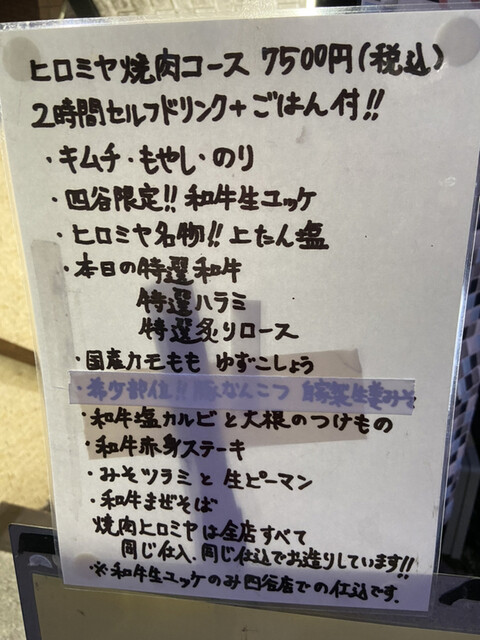 ヒロミヤ焼肉コース 7500円(税込)
2時間セルフドリンク+ごはん付!!
・キムチ・もやし・のり
・四谷限定!! 和牛生ユッケ
・ヒロミヤ名物!! 上たん塩
・本日の特選和牛
特選ハラミ
特選炙りロース
・国産カモもも ゆずこしょう
・希少部位!! 豚なんこつ 自家製生姜みそ
・和牛塩カルビと大根のつけもの
・和牛赤身ステーキ
・みそツラミと生ピーマン
・和牛まぜそば
焼肉ヒロミヤは全店すべて
同じ仕入、同じ仕込でお造りしています!!
※和牛生ユッケのみ四谷店での仕込です.